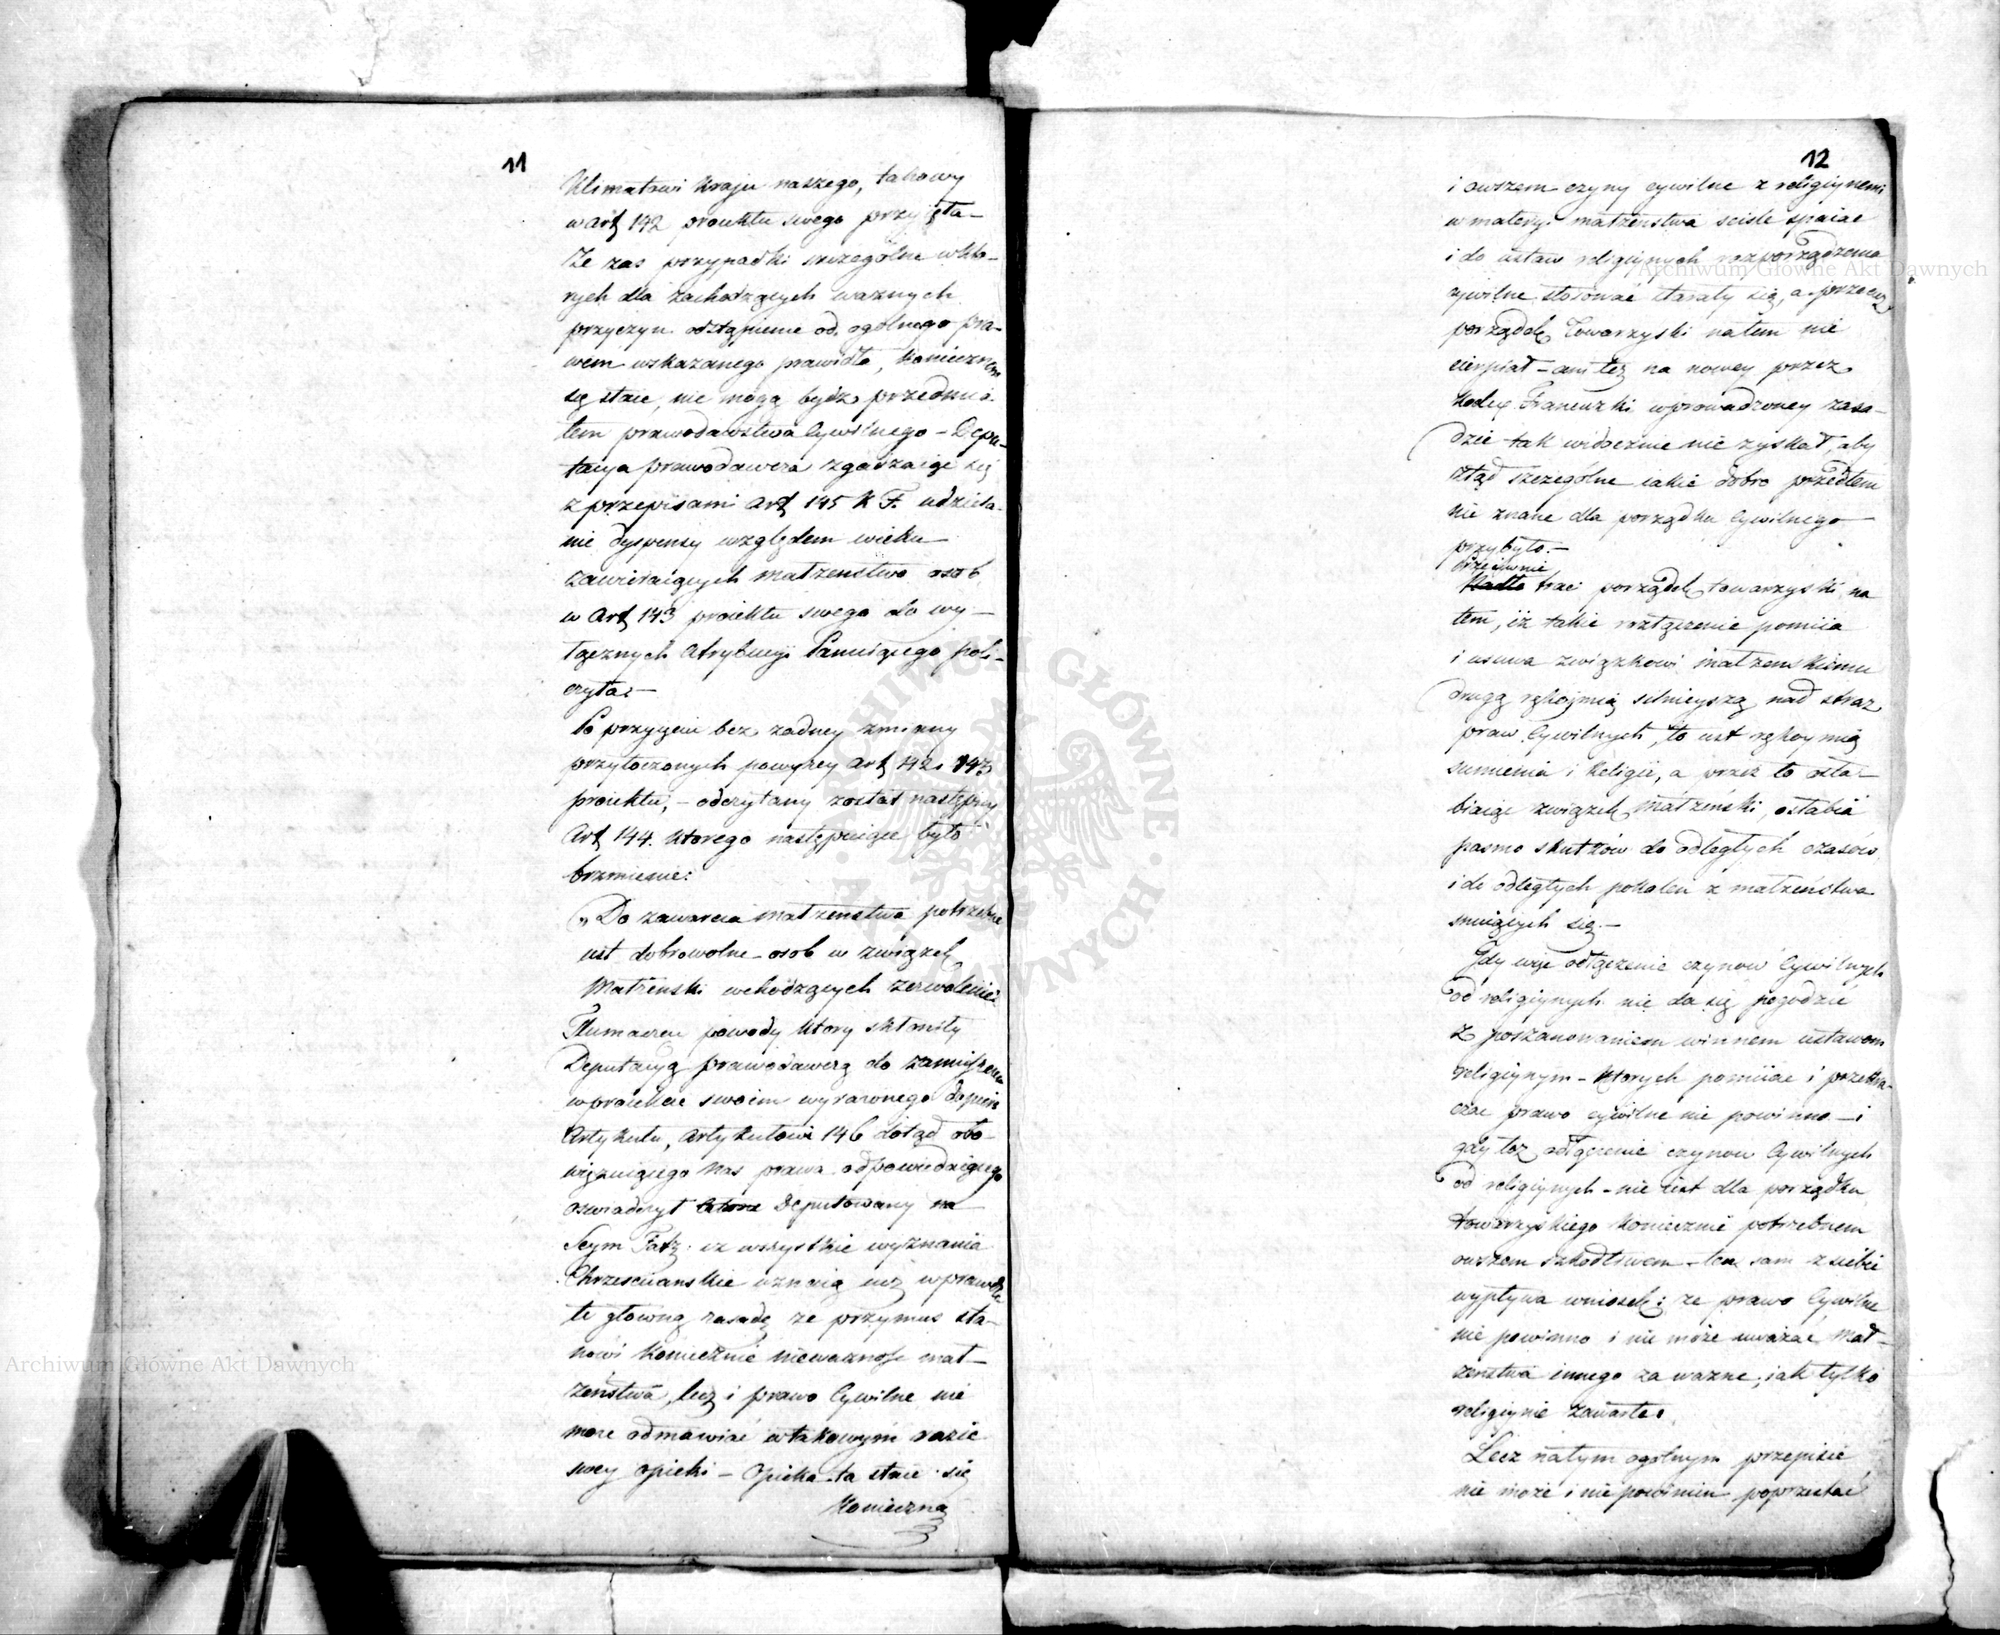 11
Klimatowi Kraju naszego, takowy
w art 142 proiektu swego przyięta —
Ze zas przypadki szczególne w któ-
rych dla zachodzących waznych
przyczyn odstąpienie od ogólnego pra-
wem wskazanego prawidła, koniecznem
się staie, nie mogą bydz przedmio-
tem prawodawstwa Cywilnego — Depu-
tacya prawodawcza zgadzaiąc się
z przepisami art 145 K F. udziela-
nie dyspensy względem wieku
zawieraiących małzenstwo osob
w art 143 proiektu swego do wy-
łącznych atrybucyi Panuiącego poli-
czyła. —
Po przyięciu bez zadney zmiany
przytoczonych powyzey art 142 i 143
proiektu, — odczytany został następny
Art 144. ktorego następuiące było
brzmienie:
„Do zawarcia małzenstwa potrzebne
iest dobrowolne osob w związek
Małżeński wchodzących zezwolenie.
Tłumacząc powody ktory skłoniły
Deputacyą prawodawczą do zamieszczenia
w proiekcie swoim wyrazonego dopiero
Artykułu, artykułowi 146 dotąd obo-
wiązuiącego nas prawa odpowiedaiącego
oswiadczył Deputowany na
Seym Fatz. iz wszystkie wyznania
Chrzescianskie uznaią iuz wprawdzie
tę główną zasadę ze przymus sta-
nowi koniecznie niewaznosc mał-
żeństwa, lecz i prawo Cywilne nie
moze odmawiać w takowym razie
swey opieki — Opieka ta staie się
Konieczną
12
i owszem czyny cywilne z religiynemi
w materyi małżenstwa scisle spaiać
i do ustaw religiynych rozporządzenia
cywilne stosować starały się, a przecież
porządek Towarzyski na tem nie
cierpiał — ani też na nowey przez
Kodex Francuzki wprowadzoney zasa-
dzie tak widocznie nie zyskał, aby
ztąd szczególne iakie dobro przedtem
nie znane dla porządku Cywilnego
przybyło. —
Przeciwnie
traci porządek towarzyski na
tem, iż takie rozłączenie pomiia
i usuwa związkowi małżenskiemu
drugą rękoymią silnieyszą nad straz
praw Cywilnych, to iest rękoymią
sumienia i Religii, a przez to osła-
biaiąc związek Małżeński, osłabia
pasmo skutków do odległych czasów
i do odległych pokoleń z małżeństwa
snuiących się. —
Gdy więc odłączenie czynow Cywilnych
od religiynych nie da się pogodzić
z poszanowaniem winnem ustawom
religiynym — ktorych pomiiać i przekra-
czać prawo cywilne nie powinno — i
gdy toż odłączenie czynow Cywilnych
od religiynych — nie iest dla porządku
towarzyskiego koniecznie potrzebnem
owszem szkodliwem — ten sam z siebie
wypływa wniosek; ze prawo Cywilne
nie powinno i nie może uważać Mał-
żeństwa innego za wazne, iak tylko
religiynie zawarte.
Lecz na tym ogólnym przepisie
nie może i nie powinien poprzestać
Archiwum Główne Akt Dawnych
Archiwum Główne Akt Dawnych
ARCHIWUM GŁÓWNE AKT DAWNYCH